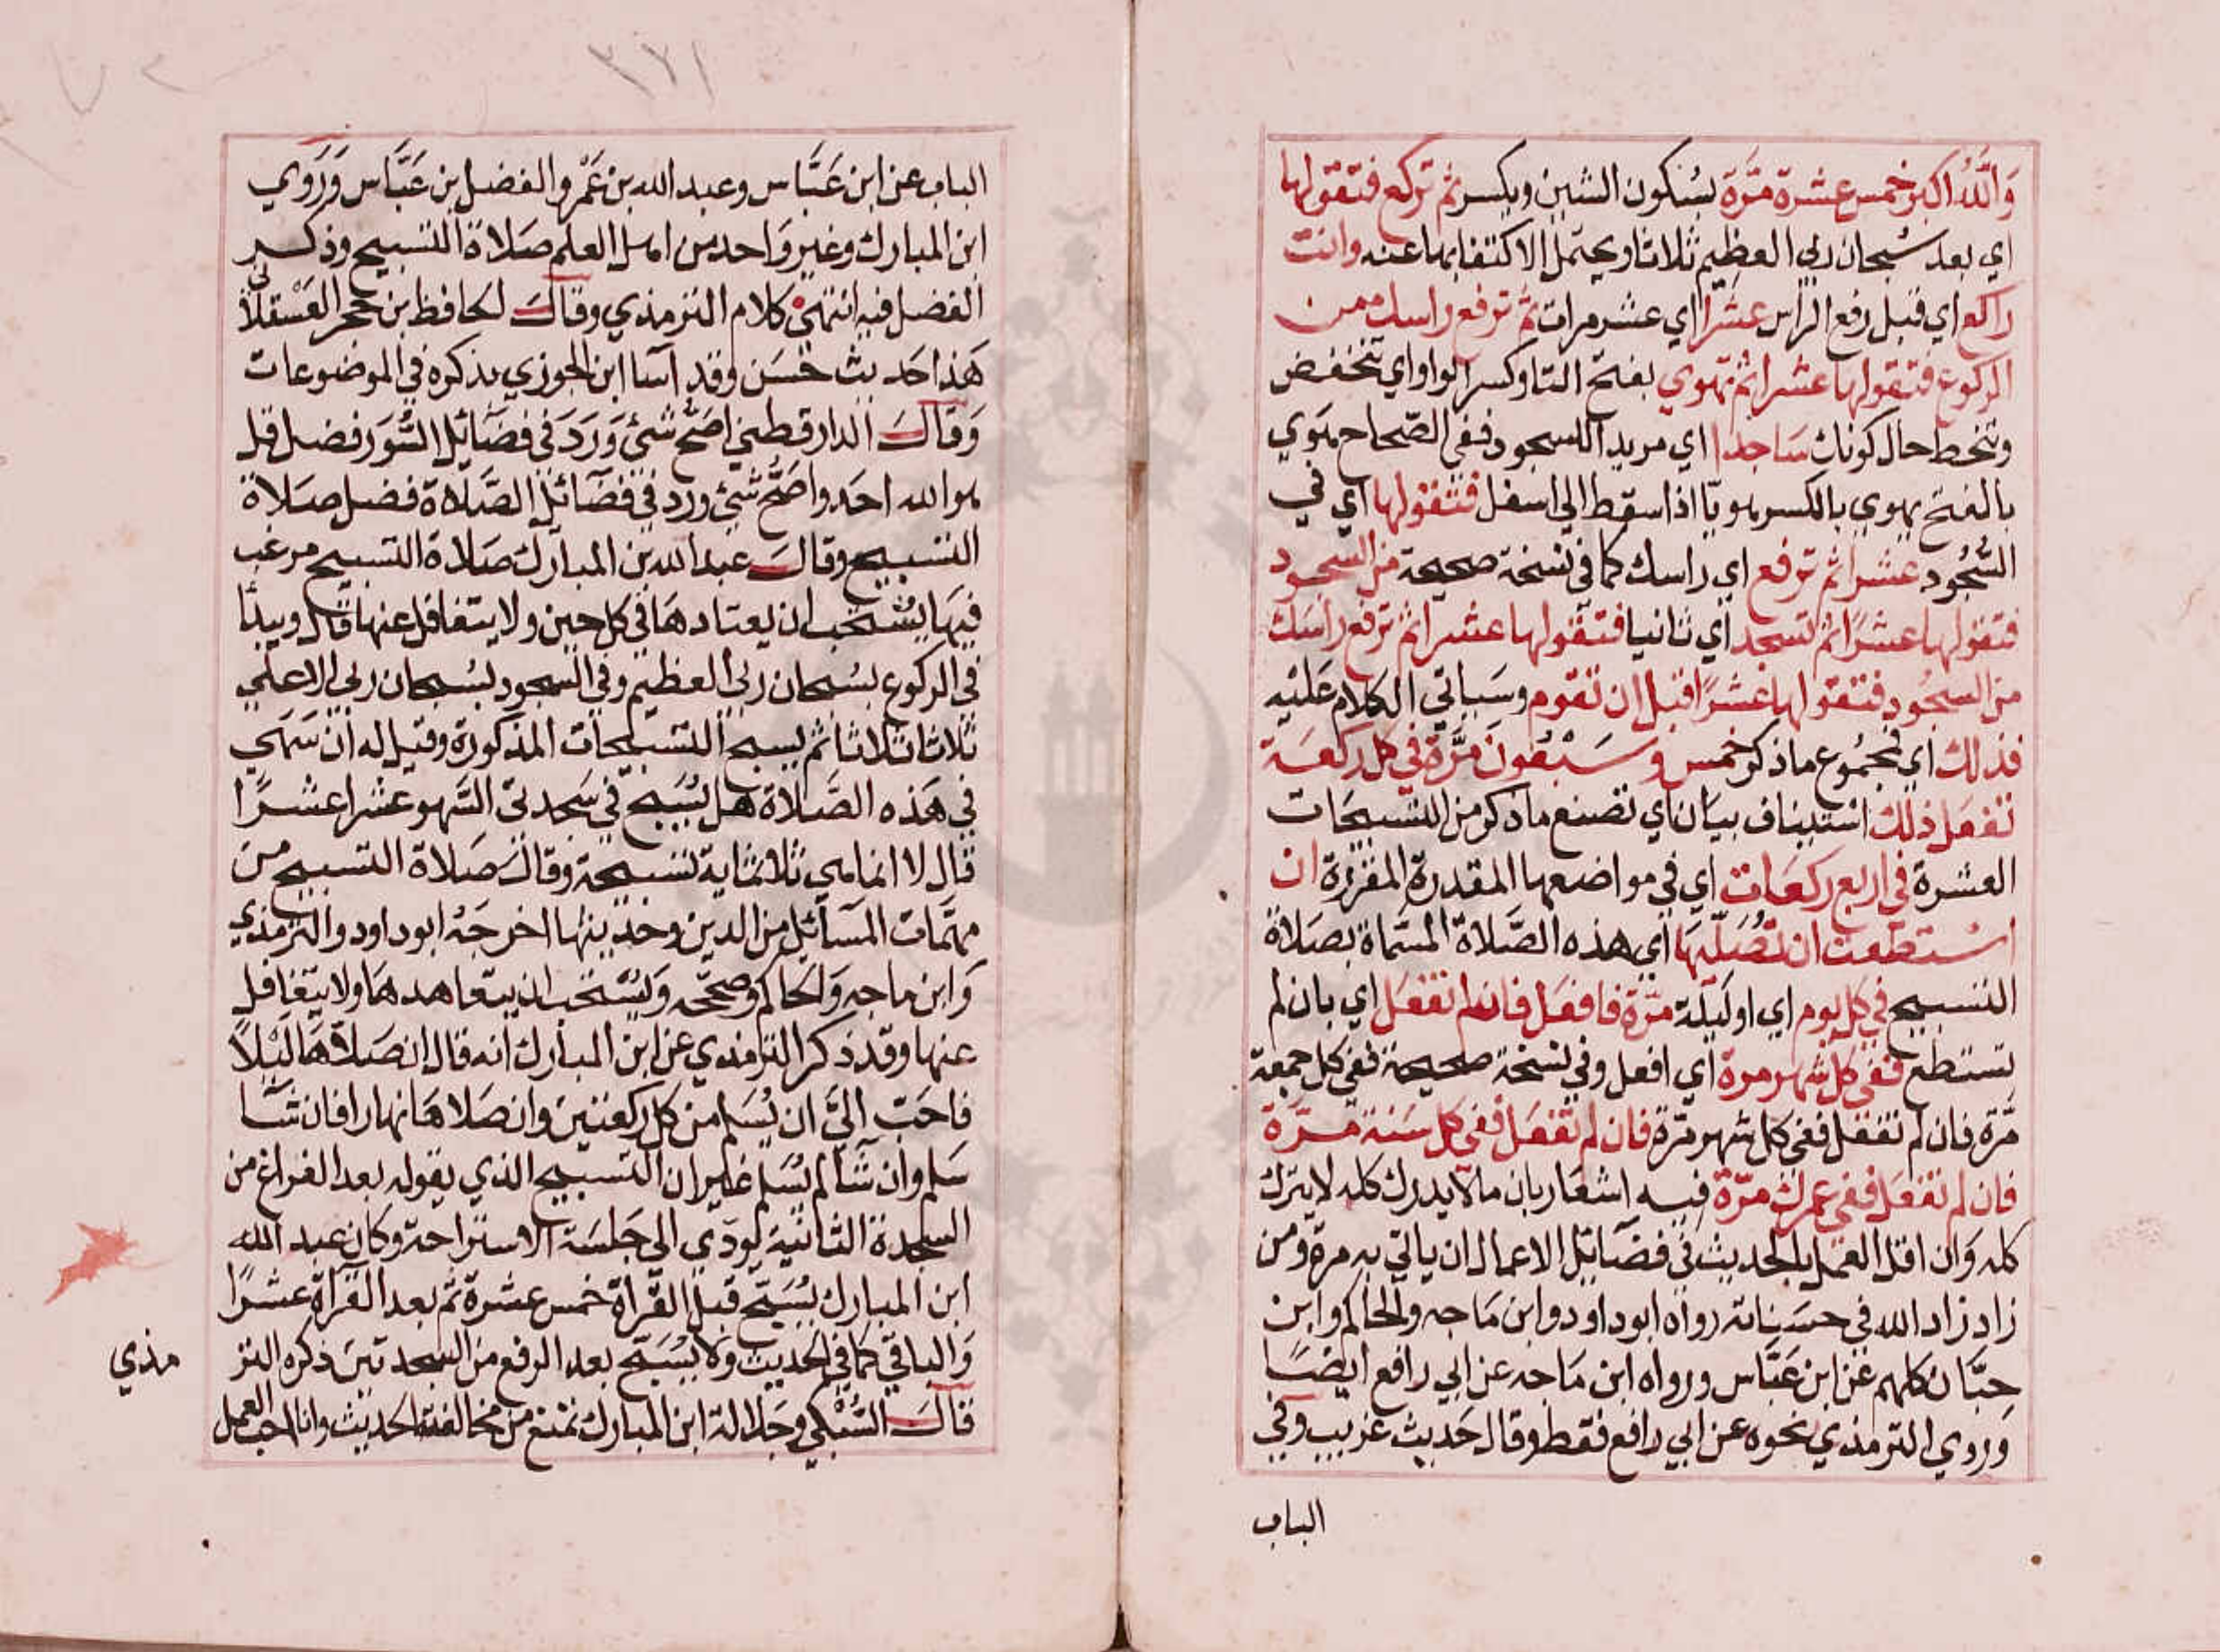 والله اكبر خمس عشرة مرة بسكون الشين ويكسر ثم تركع فتقولها
اي بعد سبحان ربي العظيم ثلاثا ويحتمل الاكتفا بها عنه وانت
راكع اي قبل رفع الراس عشرا اي عشر مرات ثم ترفع راسك من
الركوع فتقولها عشرا ثم تهوي بفتح التا وكسر الواو اي تنخفض
وتنحط حال كونك ساجدا اي مريدا للسجود ففي الصحاح هوي
بالفتح يهوي بالكسر هويا اذا سقط الي اسفل فتقولها اي في
السجود عشرا ثم ترفع اي راسك كما في نسخة صحيحة من السجود
فتقولها عشرا ثم تسجد اي ثانيا فتقولها عشرا ثم ترفع راسك
من السجود فتقولها عشرا قبل ان تقوم وسياتي الكلام عليه
فذلك اي مجموع ما ذكر خمس وسبعون مرة في كل ركعة
تفعل ذلك استيناف بيان اي تصنع ما ذكر من التسبيحات
العشرة في اربع ركعات اي في مواضعها المقدرة المقررة ان
استطعت ان تصليها اي هذه الصلاة المسماة بصلاة
التسبيح في كل يوم اي او ليلة مرة فافعل فان لم تفعل اي بان لم
تستطع ففي كل شهر مرة اي افعل وفي نسخة صحيحة ففي كل جمعة
مرة فان لم تفعل ففي كل شهر مرة فان لم تفعل ففي كل سنة مرة
فان لم تفعل ففي عمرك مرة فيه اشعار بان ما لا يدرك كله لا يترك
كله وان اقل العمل بالحديث في فضائل الاعمال ان ياتي به مرة ومن
زاد زاد الله في حسناته رواه ابو داود وابن ماجه والحاكم وابن
حبان كلهم عن ابن عباس ورواه ابن ماجه عن ابي رافع ايضا
وروي الترمذي نحوه عن ابي رافع فقط وقال حديث غريب وفي
الباب
٣٧١
الباب عن ابن عباس وعبد الله بن عمرو الفضل ابن عباس وروي
ابن المبارك وغير واحد من اهل العلم صلاة التسبيح وذكر
الفضل فيه انتهي كلام الترمذي وقال الحافظ ابن حجر العسقلاني
هذا حديث حسن وقد اسا ابن الجوزي بذكره في الموضوعات
وقال الدارقطني اصح شئ ورد في فضائل السور فضل قل
هو الله احد واصح شئ ورد في فضائل الصلاة فضل صلاة
التسبيح وقال عبد الله بن المبارك صلاة التسبيح مرغب
فيها يستحب ان يعتادها في كل حين ولا يتغافل عنها قال ويبدأ
في الركوع بسبحان ربي العظيم وفي السجود بسبحان ربي الاعلي
ثلاثا ثلاثا ثم يسبح التسبيحات المذكورة وقيل له ان سهي
في هذه الصلاة هل يسبح في سجدتي السهو عشرا عشرا
قال لا انما هي ثلاثماية تسبيحة وقال صلاة التسبيح من
مهمات المسائل من الدين وحديثها اخرجه ابو داود والترمذي
وابن ماجه والحاكم وصححه ويستحب ان يتعاهدها ولا يتغافل
عنها وقد ذكر الترمذي عن ابن المبارك انه قال ان صلاها ليلا
فاحب الي ان يسلم من كل ركعتين وان صلاها نهارا فان شا
سلم وان شا لم يسلم غير ان التسبيح الذي يقوله بعد الفراغ من
السجدة الثانية يودي الي جلسة الاستراحة وكان عبد الله
ابن المبارك يسبح قبل القراة خمس عشرة ثم بعد القراة عشرا
والباقي كما في الحديث ولا يسبح بعد الرفع من السجدتين ذكره التر
مذي
قال السبكي وجلالة ابن المبارك تمنع من مخالفته الحديث وانا احب العمل